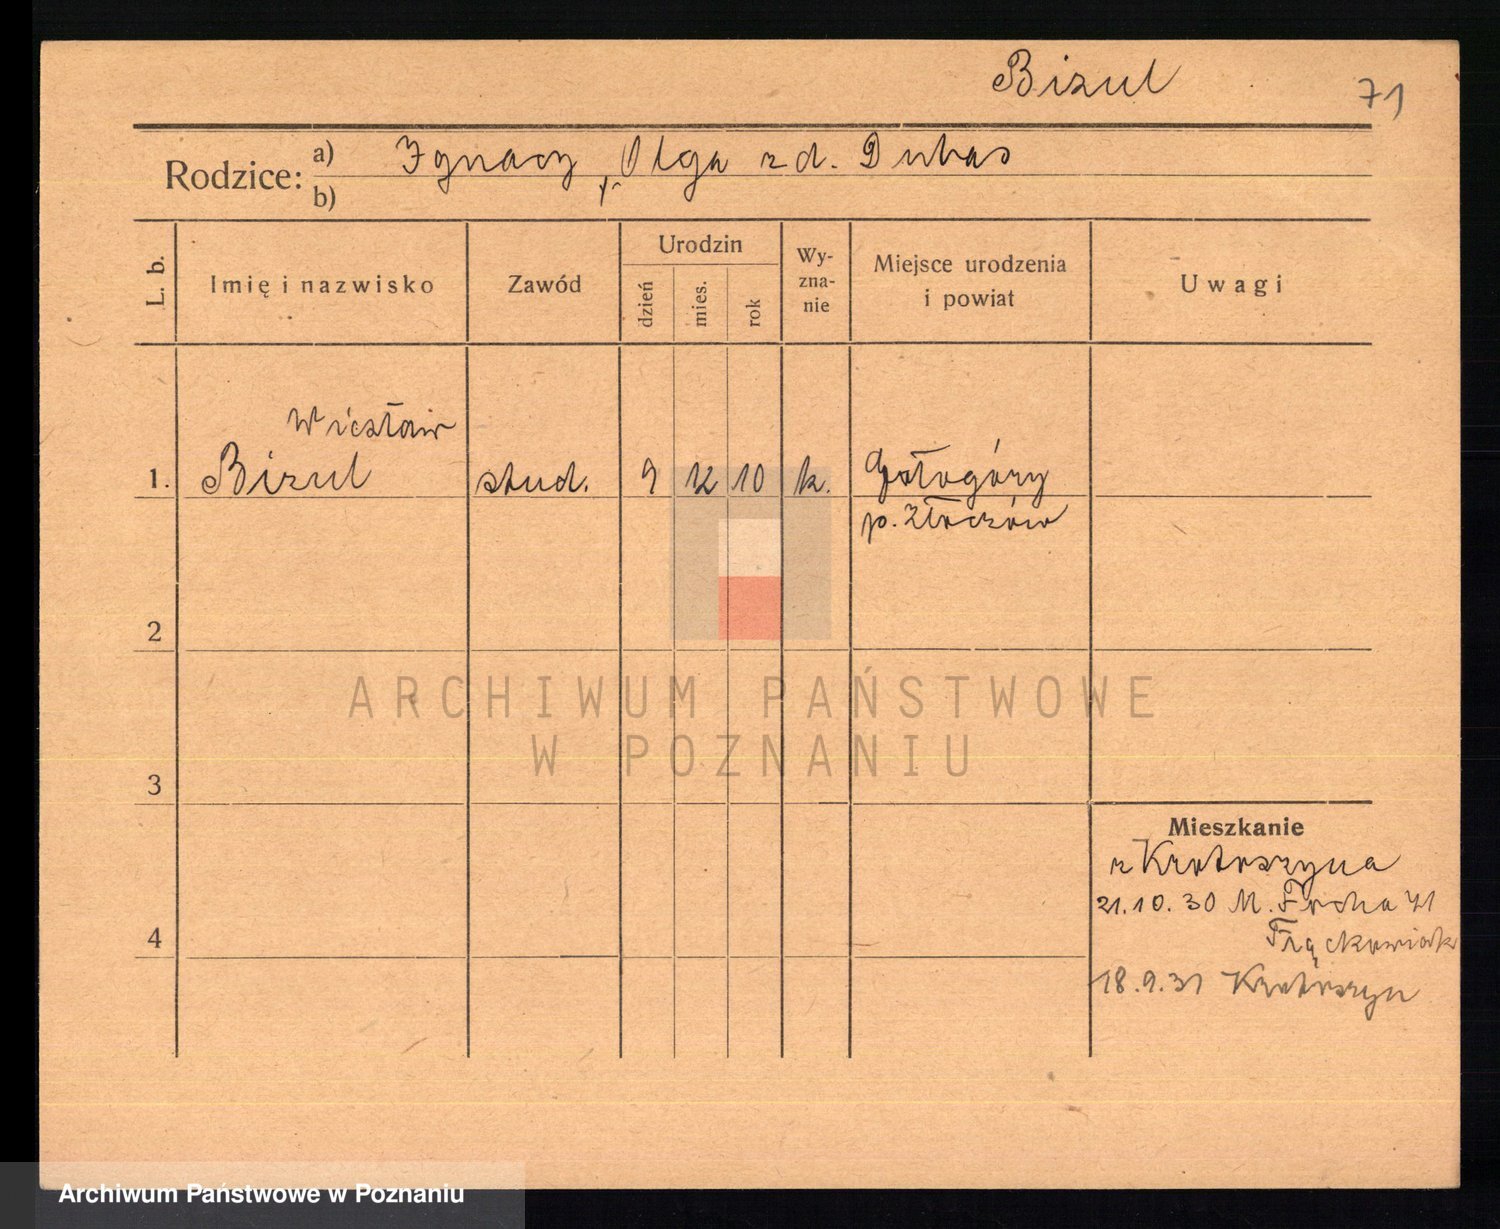 Bizul
71
Rodzice:
a) Ignacy, Olga zd. Dubas
b)
L. b.
Imię i nazwisko
Zawód
Urodzin
dzień
mies.
rok
Wy-
zna-
nie
Miejsce urodzenia
i powiat
Uwagi
Wiesław
1. Bizul stud. 9 12 10 k. Gołogóry
p. Złoczów
2
3
4
Mieszkanie
z Krotoszyna
21.10.30 M. Focha 41
Frąckowiak
18.9.31 Krotoszyn
ARCHIWUM PAŃSTWOWE
W POZNANIU
Archiwum Państwowe w Poznaniu